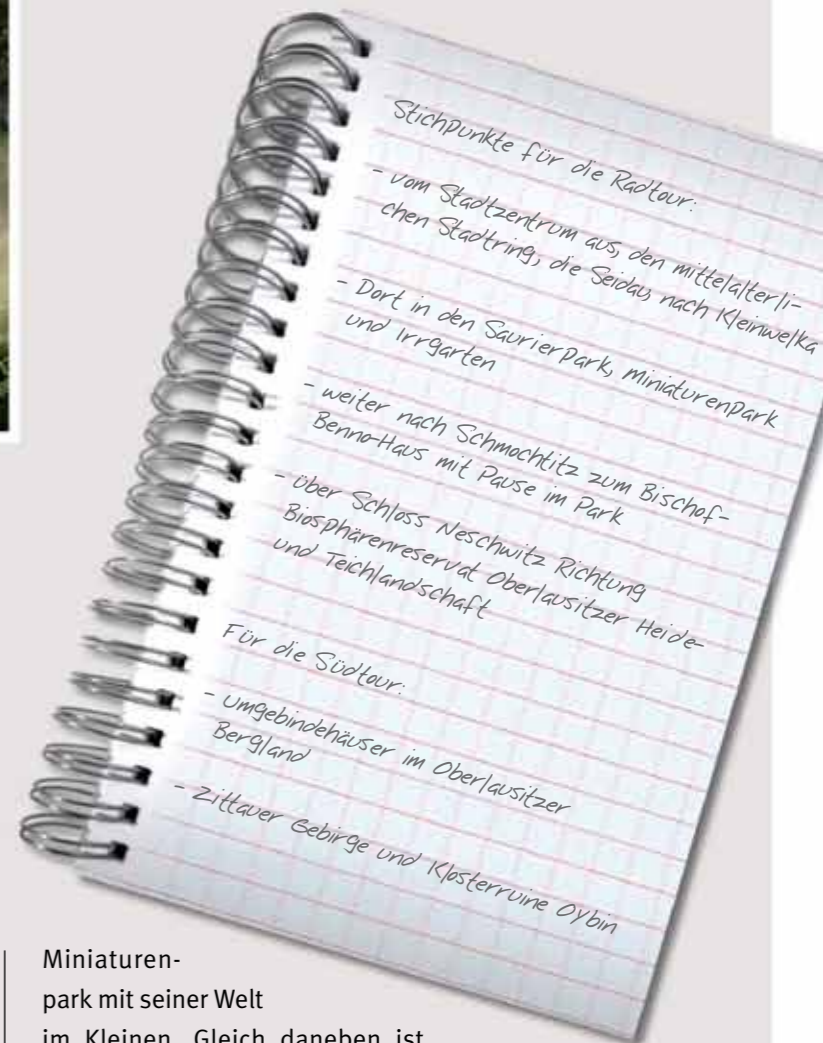 Stichpunkte für die Radtour:
- vom Stadtzentrum aus, den mittelalterli-
chen Stadtring, die Seidau, nach Kleinwelka
- Dort in den Saurierpark, Miniaturenpark
und Irrgarten
- weiter nach Schmochtitz zum Bischof-
Benno-Haus mit Pause im Park
- über Schloss Neschwitz Richtung
Biosphärenreservat Oberlausitzer Heide-
und Teichlandschaft
Für die Südtour:
- Umgebindehäuser im Oberlausitzer
Bergland
- Zittauer Gebirge und Klosterruine Oybin
Miniaturen-
park mit seiner Welt
im Kleinen. Gleich daneben ist